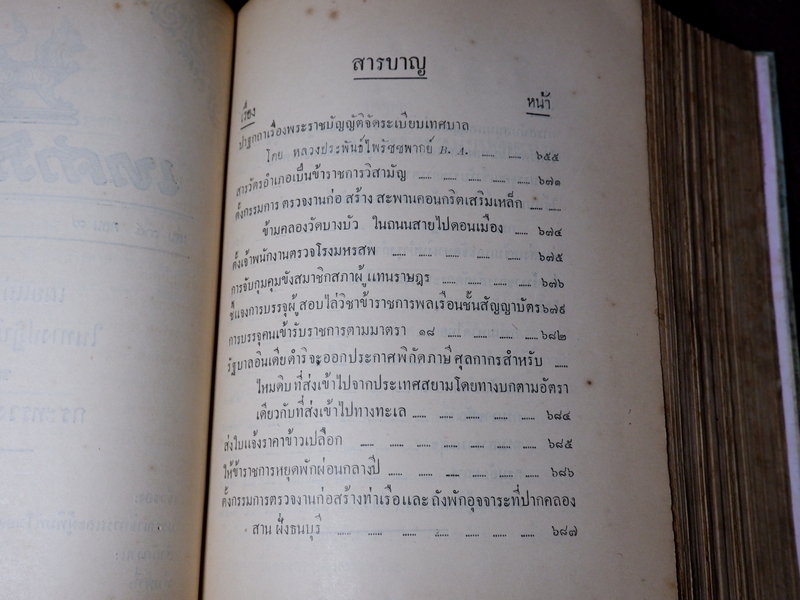 สารบาญ
เรื่อง หน้า
ปาฐกถาเรื่องพระราชบัญญัติจัดระเบียบเทศบาล
โดย หลวงประพันธ์ไพรัชชพากย์ B. A. ...... ...... ๖๕๕
สารวัตรอำเภอเป็นข้าราชการวิสามัญ ...... ...... ...... ...... ๖๗๑
ตั้งกรรมการ ตรวจงานก่อ สร้าง สะพานคอนกริตเสริมเหล็ก ...... ......
ข้ามคลองวัดบางบัว ในถนนสายไปดอนเมือง ...... ...... ๖๗๔
ตั้งเจ้าพนักงานตรวจโรงมหรสพ ...... ...... ...... ...... ...... ๖๗๕
การจับกุมคุมขังสมาชิกสภาผู้แทนราษฎร ...... ...... ...... ...... ๖๗๖
ชี้แจงการบรรจุผู้สอบไล่วิชาข้าราชการพลเรือนชั้นสัญญาบัตร ๖๗๙
การบรรจุคนเข้ารับราชการตามมาตรา ๑๘ ...... ...... ...... ...... ๖๘๒
รัฐบาลอินเดียดำริจะออกประกาศพิกัดภาษีศุลกากรสำหรับ ......
ไหมดิบที่ส่งเข้าไปจากประเทศสยามโดยทางบกตามอัตรา
เดียวกับที่ส่งเข้าไปทางทะเล ...... ...... ...... ...... ...... ๖๘๔
ส่งใบแจ้งราคาข้าวเปลือก ...... ...... ...... ...... ...... ...... ๖๘๕
ให้ข้าราชการหยุดพักผ่อนกลางปี ...... ...... ...... ...... ...... ๖๘๖
ตั้งกรรมการตรวจงานก่อสร้างท่าเรือและ ถังพักอุจจาระที่ปากคลอง
สาน ฝั่งธนบุรี ...... ...... ...... ...... ...... ...... ๖๘๗